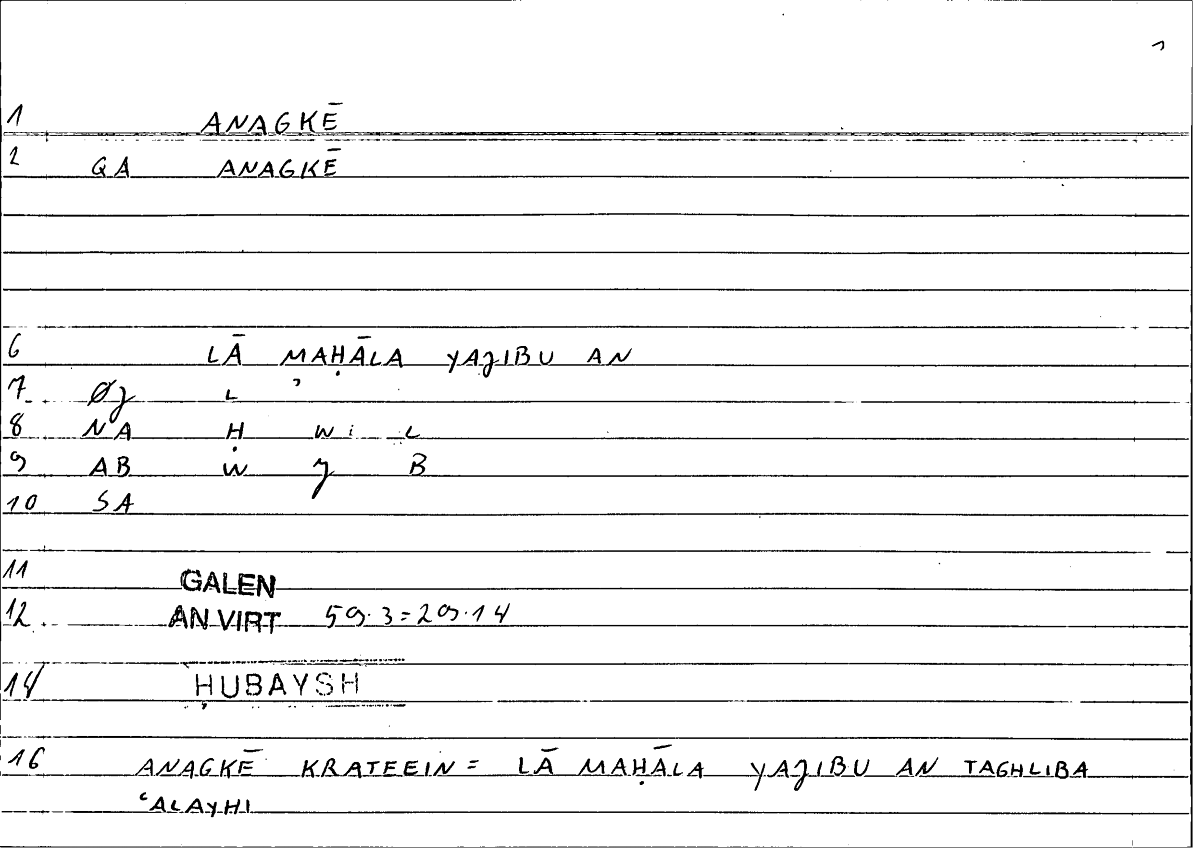 1 ANAGKĒ
2 QA ANAGKĒ
6 LĀ MAḤĀLA YAJIBU AN
7 ØJ L ʾ
8 NA Ḥ W L
9 AB W J B
10 SA
11 GALEN
12 AN VIRT 59.3=29.14
14 ḤUBAYSH
16 ANAGKĒ KRATEEIN = LĀ MAḤĀLA YAJIBU AN TAGHLIBA
ʿALAYHI